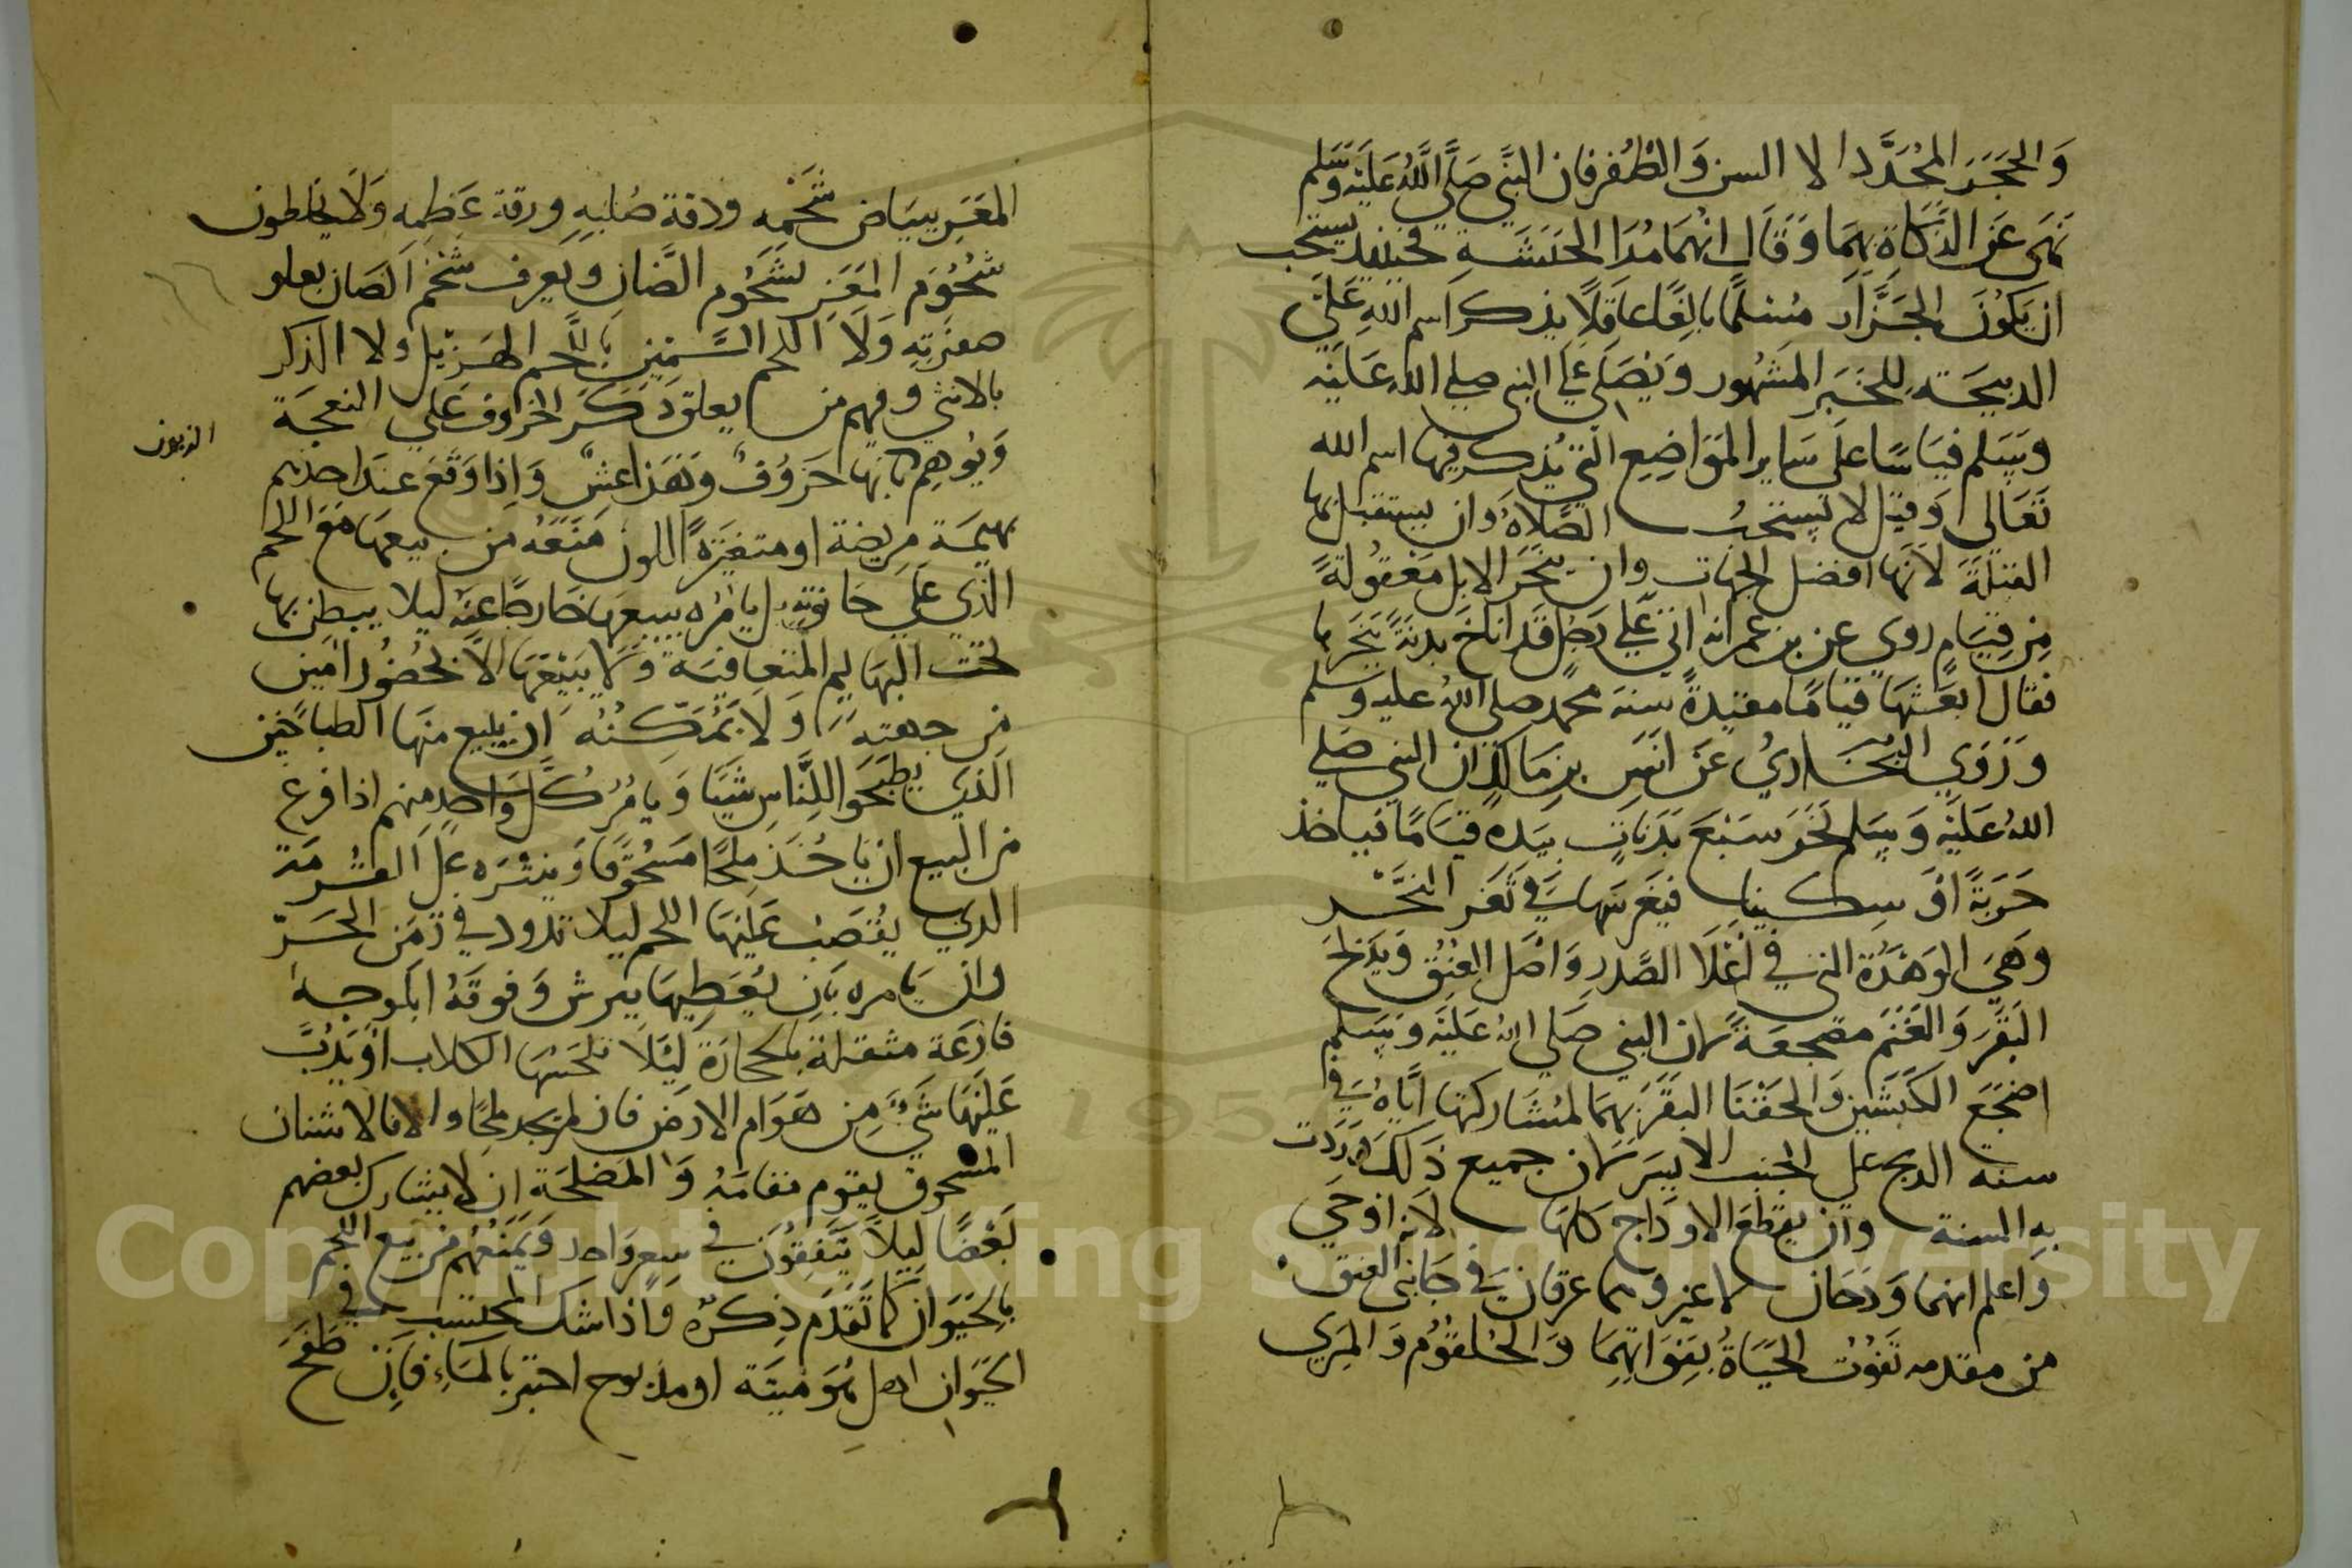 وَالحجَر المُحَدَّد الا السن وَالظُفر فان النبي صَلَّي اللَّهُ عَلَيْهِ وَسَلم
نهَى عَن الذكَاة بهمَا وَقَال انهُمَا مُدَا الحبَشَةِ فحينيذ يستحب
ان يَكوُنَ الجَزَّار مُسْلِمًا بالِغًا عَاقِلًا يذكر اسم اللهِ عَلَي
الدبيحَة للخبَر المشهُور وَيُصَلي عَلي النبي صلي الله عَليْه
وَسَلم قيَاسًا علَى سَاير المَوَاضِعِ التي يُذكر فيها اسم الله
تعَالى وَقيل لا يُستحبُ الصَّلاة وَان يستقبل بها
القبلة لانَها افضَل الجهَات وان ينحَر الابل مَعْقُولةً
مِن قِيَامٍ روي عن بن عمر انه اتي عَلي رَجُل قَد اناخ بدنَةً ينحَرها
فقال ابعَثهَا قيَامًا مقيدةً سنة محمد صلى اللهُ عليه وسلم
وَرَوَي البُخَاريُ عَن انَسِ بن مَالكٍ ان النبي صَلي
اللهُ عَليْه وَسَلم نحَر سَبْعَ بَدَنَاتٍ بيَده قيَامًا فياخذ
حَربَةً اوْ سِكينا فيَغرسَهَا في ثغر النَّحْر
وَهيَ الوَهْدَة التي في اعْلَا الصَّدر وَاصْل العُنُق وَيَذبَح
البَقَرَ وَالغَنَمَ مضجعَةً لان النبي صَلي اللهُ عَليْه وَسَلم
اضجَع الكبَشَين وَالحقْنَا البقرَ بهمَا لمشاركتها ايَّاهُ في
سنة الدبح علي الجنب الايسَر لان جميع ذَلكَ وَرَدَت
به السنة وان يقطَعَ الاودَاج كلهَا لانه اوحَي
وَاعلم انهما وَدجَان لا غير وهما عرقان في جَانبي العنق
من مقدمه تفوُت الحيَاةُ بفِوَاتِهِمَا وَالحُلقوُم وَالمَري
المعَزِ ببيَاض شَحْمِه ودقة ضلبِهِ ورقة عَظمِه وَلَا يخلطون
شحُوُم المعَزِ بشحُوُم الضَّانِ وَيعرف شحْمُ الضان بعلو
صفرَتِه وَلَا اللحم السَّمِين باللَّحم الهَزيل ولا الذكر
بالانثي وفيهم من يعلق ذَكَر الخروف عَلي النعجَة
الزبون
وَيُوهِم بانها خَرُوُفٌ وَهَذا غشٌ وَاِذا وَقَع عند احدهم
بهيمَة مريضَة او متغيرَة اللون مَنَعَهُ من بيعهَا مَعَ اللحم
الذي عَلي حَانوته بل يامُره ببيعهَا خَارجًا عَنه ليلا يبطنهَا
تحت البهَايم المتعَافيَة وَلا يبيْعَهَا الا بحُضوُر امَين
مِن جهته وَلا يُمَكِّنُهُ ان يبيع منهَا الطباخين
الذي يُطبخُوا للنَّاسِ شَيا وَيامُرُ كلَّ وَاحدٍ منهم اذا فرغ
من البيع ان يَاخُذ ملحًا مسْحُوقًا وَينثره عَلي القُرمَة
الذي يُقصَبْ عَليْهَا اللحم ليلا تدود في زمَن الحَرّ
وان يَامره بَان يُغَطيهَا ببرش وَفوقهُ ابلوجه
فارغة مثقلة بالحجارَة لِيَلا تلحَسهَا الكلاب اوْ يَدُبَّ
عَليْهَا شَيٌ مِن هَوَام الارض فان لم يجد ملحًا والا فالاشنان
المسحوق يقوم مقامَهُ وَالمصْلحَة ان لا يتشارك بعضهم
بَعْضًا لِيلاَ يَتَّفِقُونَ في سِعرٍ وَاحد وَيَمنَعُهُم من بيع اللحم
بالحَيَوان كما تقَدم ذِكرُهُ وَاذا شك المُحتسب في
الحَيَوان اهل هُوَ ميتَة او مذبوح اختبر بالمَاءِ فاِن طفح